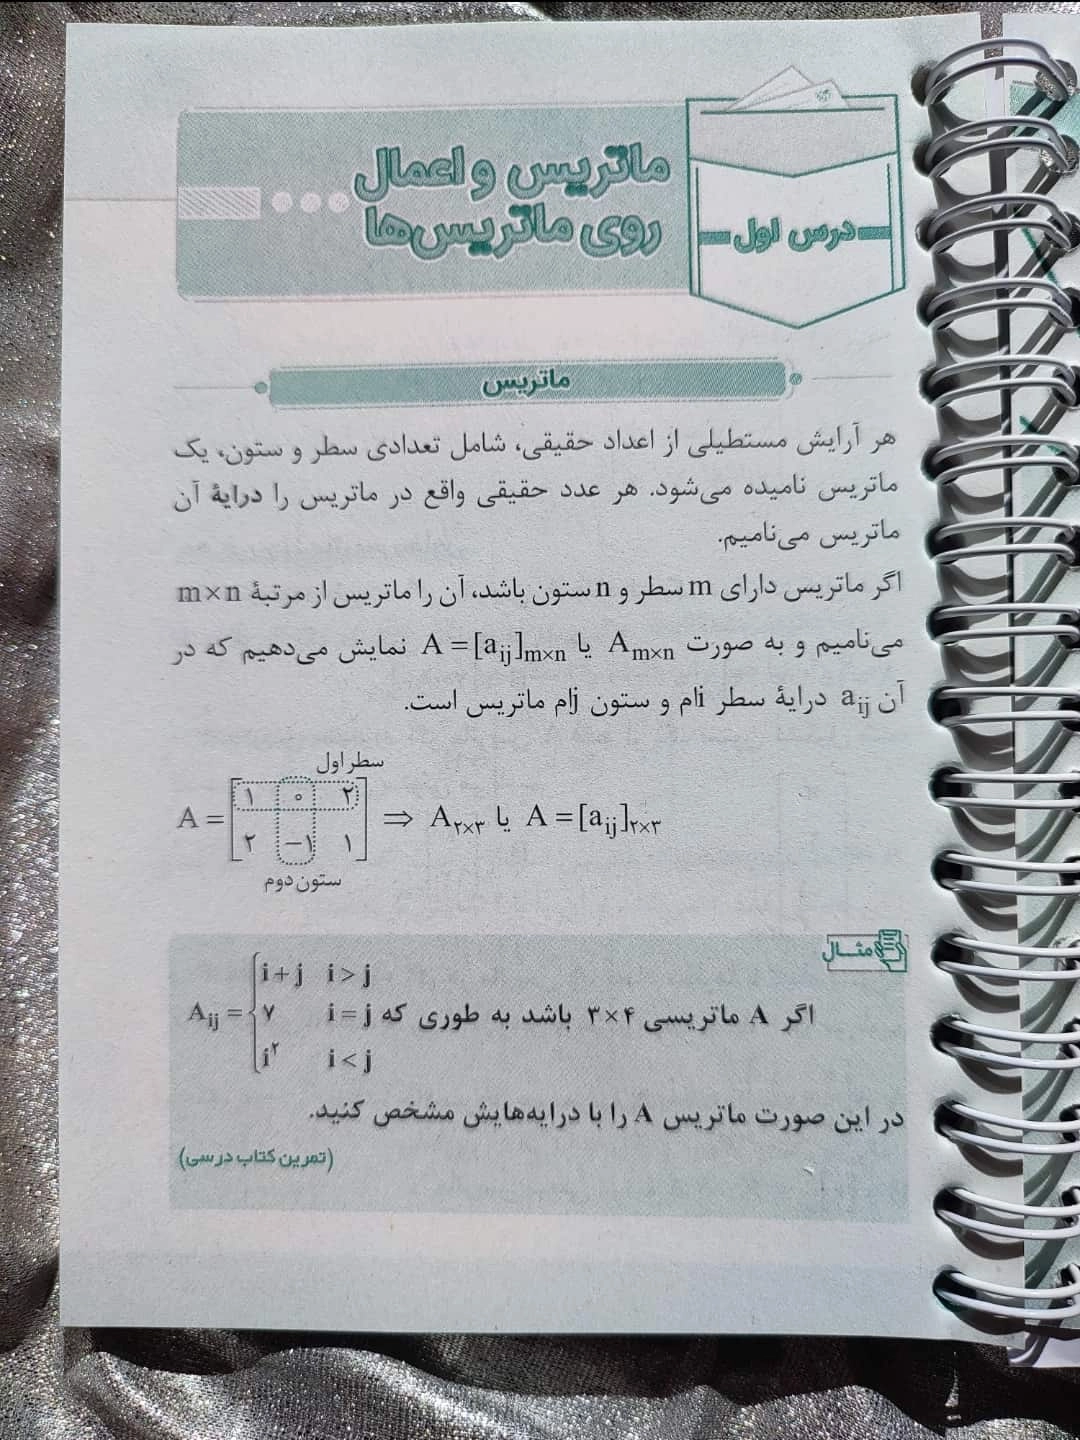 درس اول
ماتریس و اعمال
روی ماتریس‌ها
ماتریس
هر آرایش مستطیلی از اعداد حقیقی، شامل تعدادی سطر و ستون، یک
ماتریس نامیده می‌شود. هر عدد حقیقی واقع در ماتریس را درایهٔ آن
ماتریس می‌نامیم.
اگر ماتریس دارای m سطر و n ستون باشد، آن را ماتریس از مرتبهٔ m×n
می‌نامیم و به صورت A_{m×n} یا A=[a_{ij}]_{m×n} نمایش می‌دهیم که در
آن a_{ij} درایهٔ سطر iام و ستون jام ماتریس است.
سطر اول
A = [۱ ۰ ۲
۲ −۱ ۱] ⇒ A_{۲×۳} یا A=[a_{ij}]_{۲×۳}
ستون دوم
مثـال
اگر A ماتریسی ۳×۴ باشد به طوری که A_{ij} = { i+j i>j
۷ i=j
i^۲ i<j
در این صورت ماتریس A را با درایه‌هایش مشخص کنید.
(تمرین کتاب درسی)